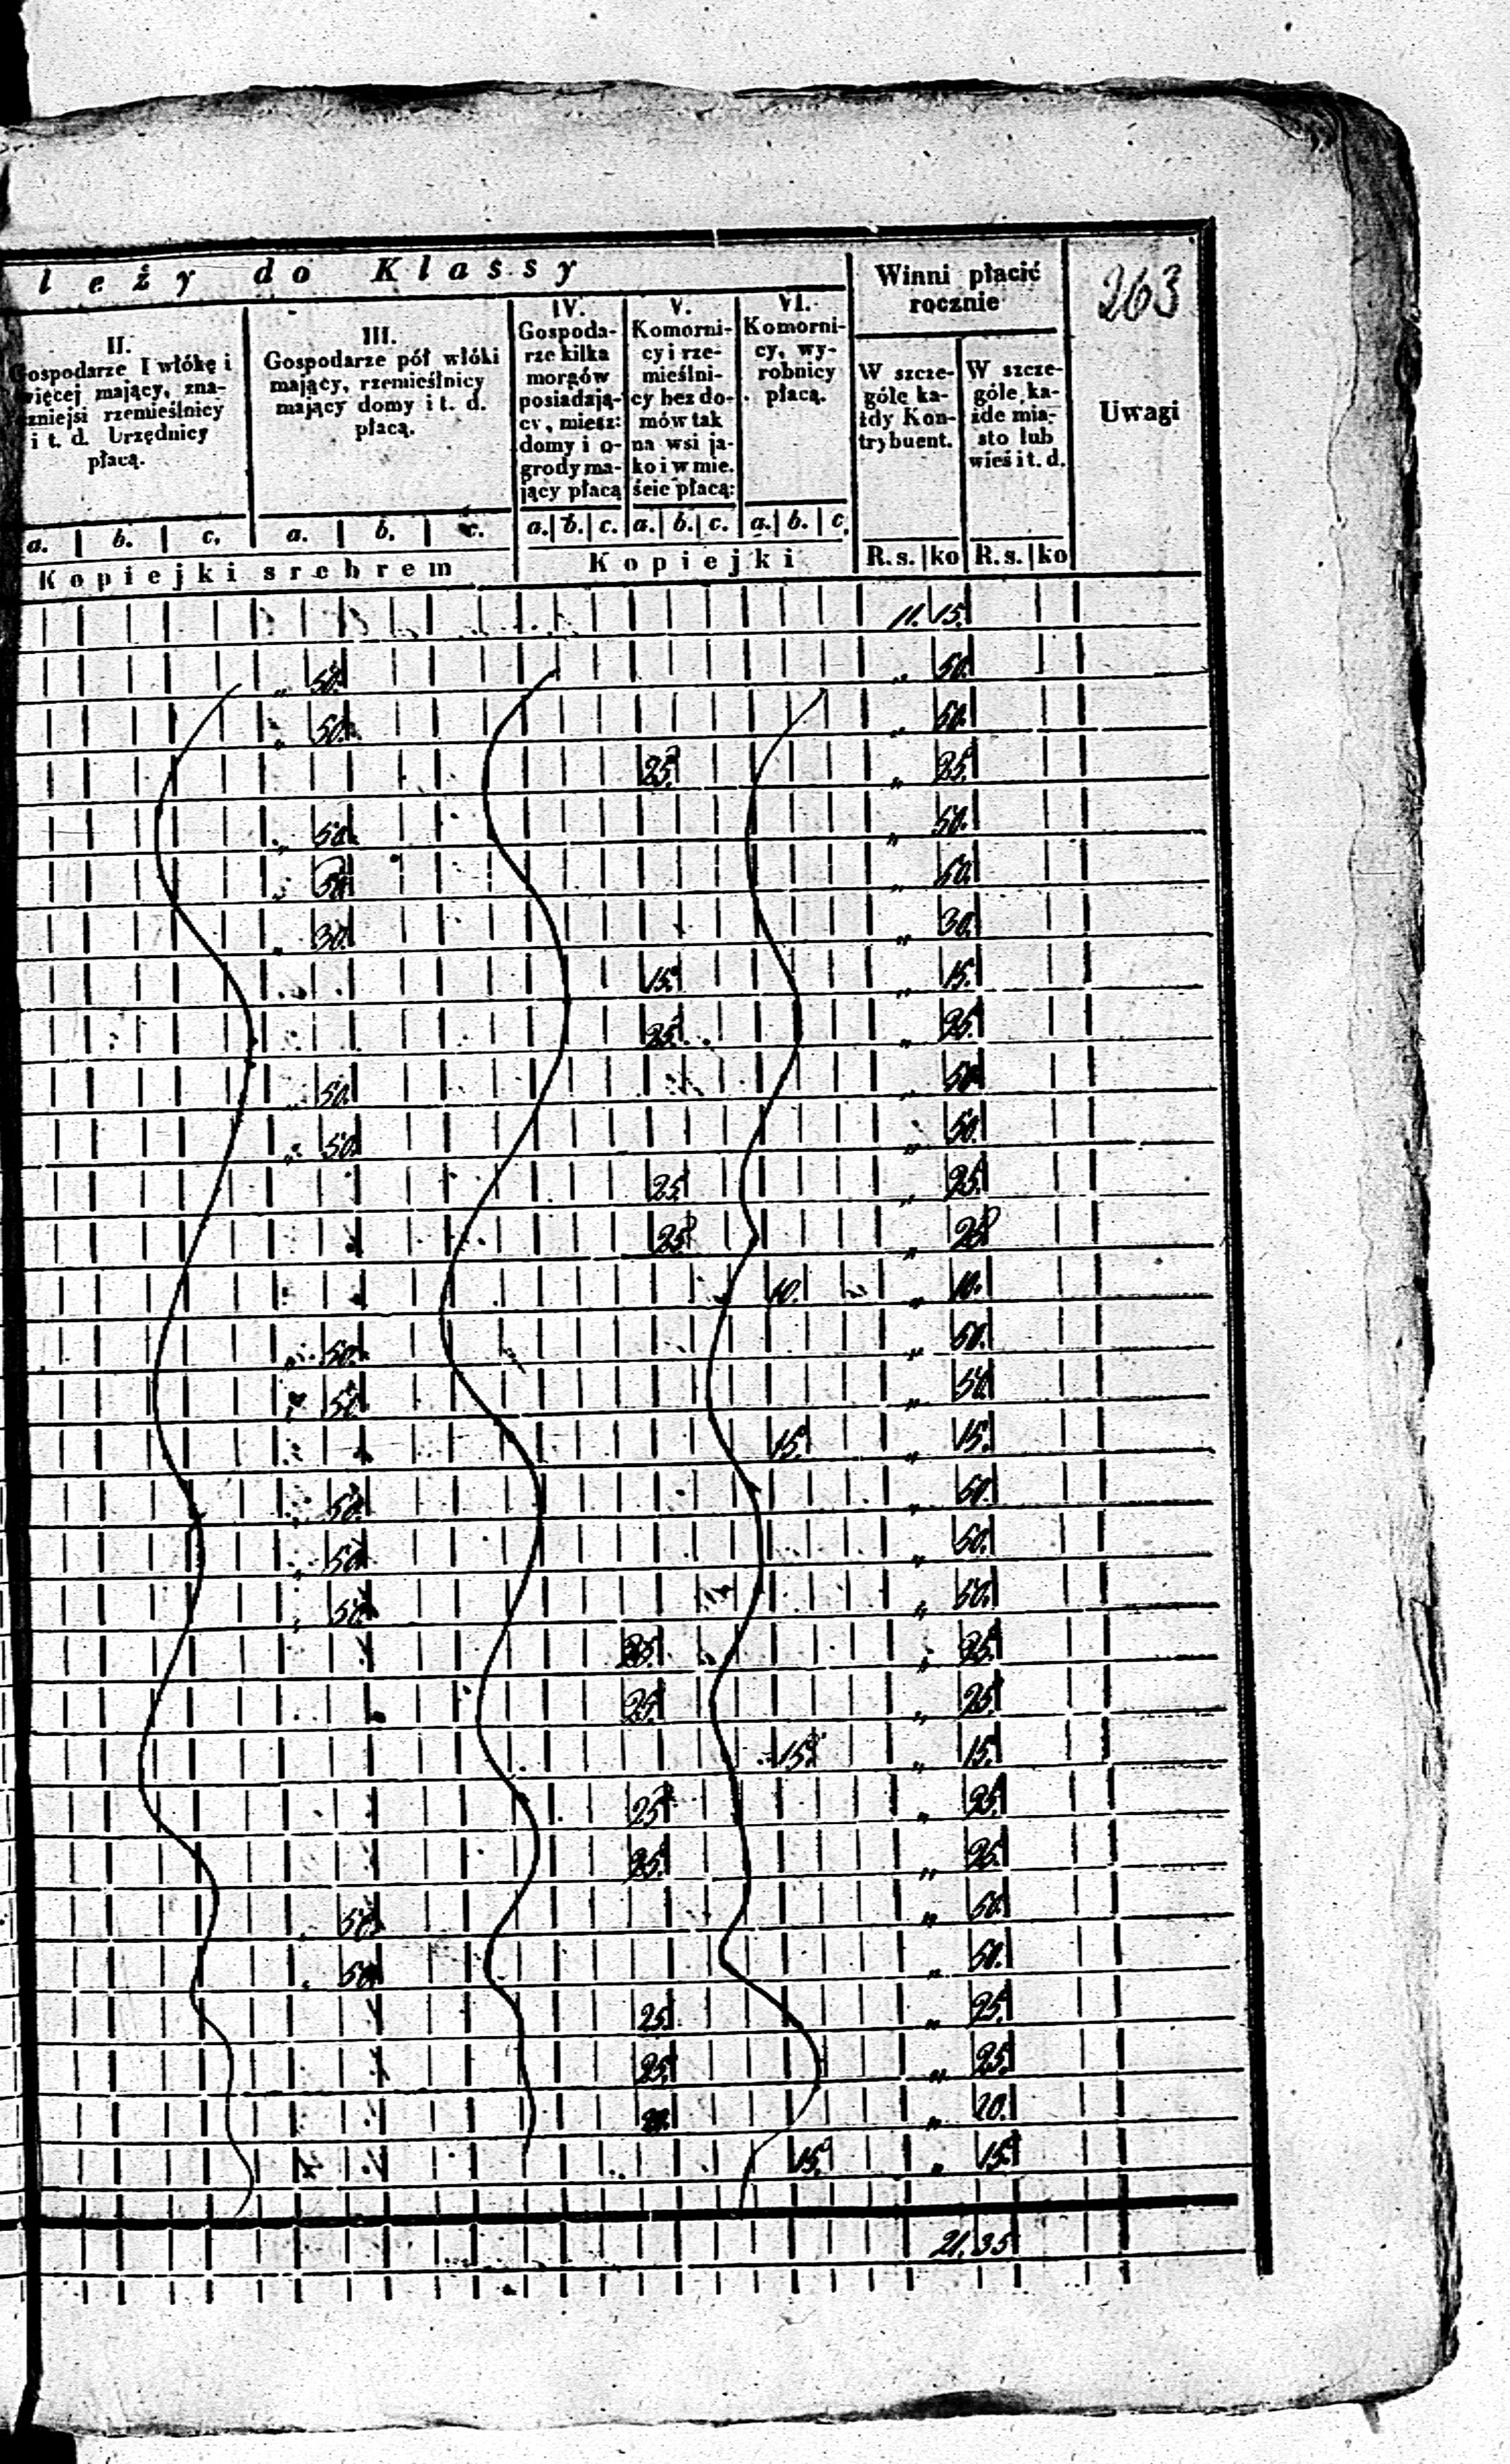 leży do Klassy
Winni płacić
rocznie
263
II.
Gospodarze I włókę i
więcej mający, zna-
czniejsi rzemieślnicy
i t. d. Urzędnicy
płacą.
III.
Gospodarze pół włóki
mający, rzemieślnicy
mający domy i t. d.
płacą.
IV.
Gospoda-
rze kilka
morgów
posiadają-
cy, miesz:
domy i o-
grody ma-
jący płacą
V.
Komorni-
cy i rze-
mieślni-
cy bez do-
mów tak
na wsi ja-
ko i w mie.
ście płacą:
VI.
Komorni-
cy, wy-
robnicy
płacą.
W szcze-
góle ka-
żdy Kon-
trybuent.
W szcze-
góle, ka-
żde mia-
sto lub
wieś i t. d.
Uwagi
a. b. c. a. b. c. a. b. c. a. b. c. a. b. c.
Kopiejki srebrem Kopiejki R. s. ko R. s. ko
11. 15.
„ 50. „ 50.
„ 50. „ 50.
25. „ 25.
„ 50. „ 50.
„ 50. „ 50.
„ 30. „ 30.
15. „ 15.
25. „ 25.
„ 50. „ 50.
„ 50. „ 50.
25. „ 25.
25 „ 25
10. „ 10.
„ 50. „ 50.
„ 50. „ 50.
15. „ 15.
„ 50. „ 50.
„ 50. „ 50.
„ 50. „ 50.
25. „ 25.
25. „ 25.
15. „ 15.
25 „ 25.
25. „ 25.
„ 50. „ 50.
„ 50. „ 50.
25. „ 25.
25. „ 25.
20. „ 20.
15. „ 15.
21. 35